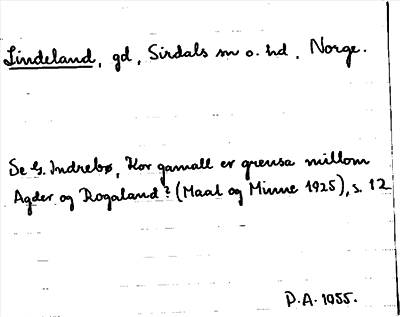 Lindeland, gd, Sirdals sn o. hd, Norge.
Se G. Indrebø, Kor gamall er grensa millom
Agder og Rogaland? (Maal og Minne 1925), s. 12
P.A. 1955.